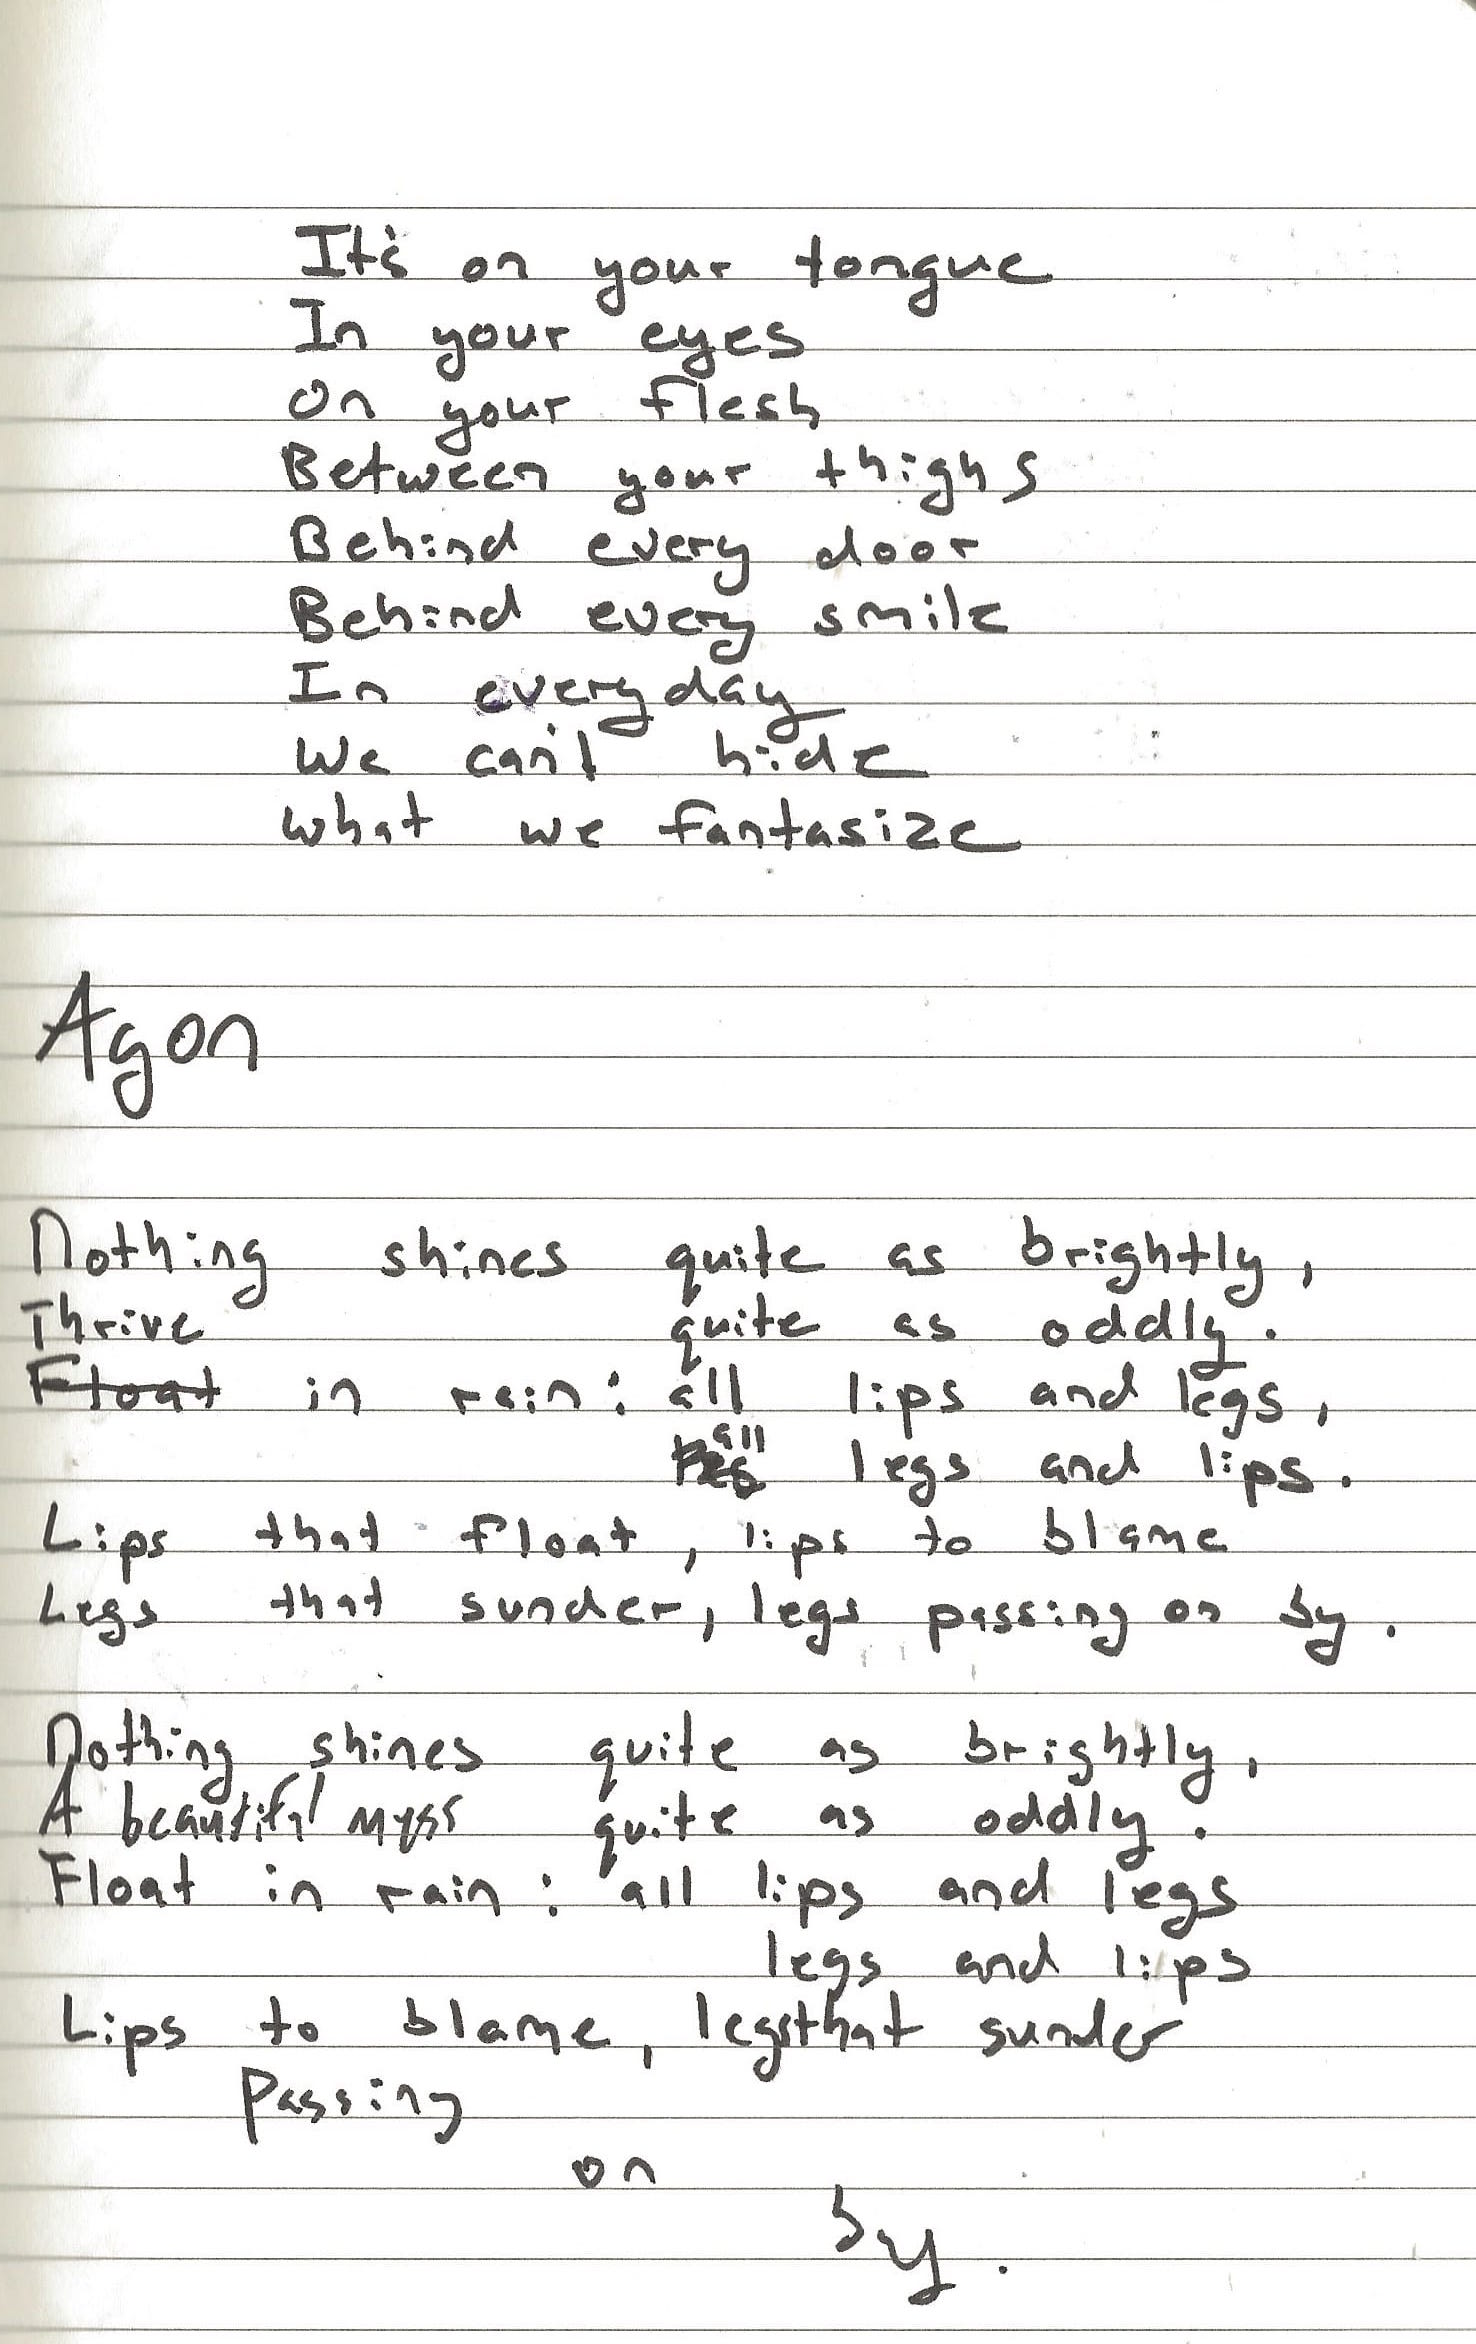 It's on your tongue
In your eyes
On your flesh
Between your thighs
Behind every door
Behind every smile
In everyday
We can't hide
What we fantasize
Agon
Nothing shines quite as brightly,
Thrive quite as oddly.
Float in rain: all lips and legs,
all
legs and lips.
Lips that float, lips to blame
Legs that sunder, legs passing on by.
Nothing shines quite as brightly,
A beautiful myss quite as oddly.
Float in rain: all lips and legs
legs and lips
Lips to blame, legs that sunder
Passing
on
by.